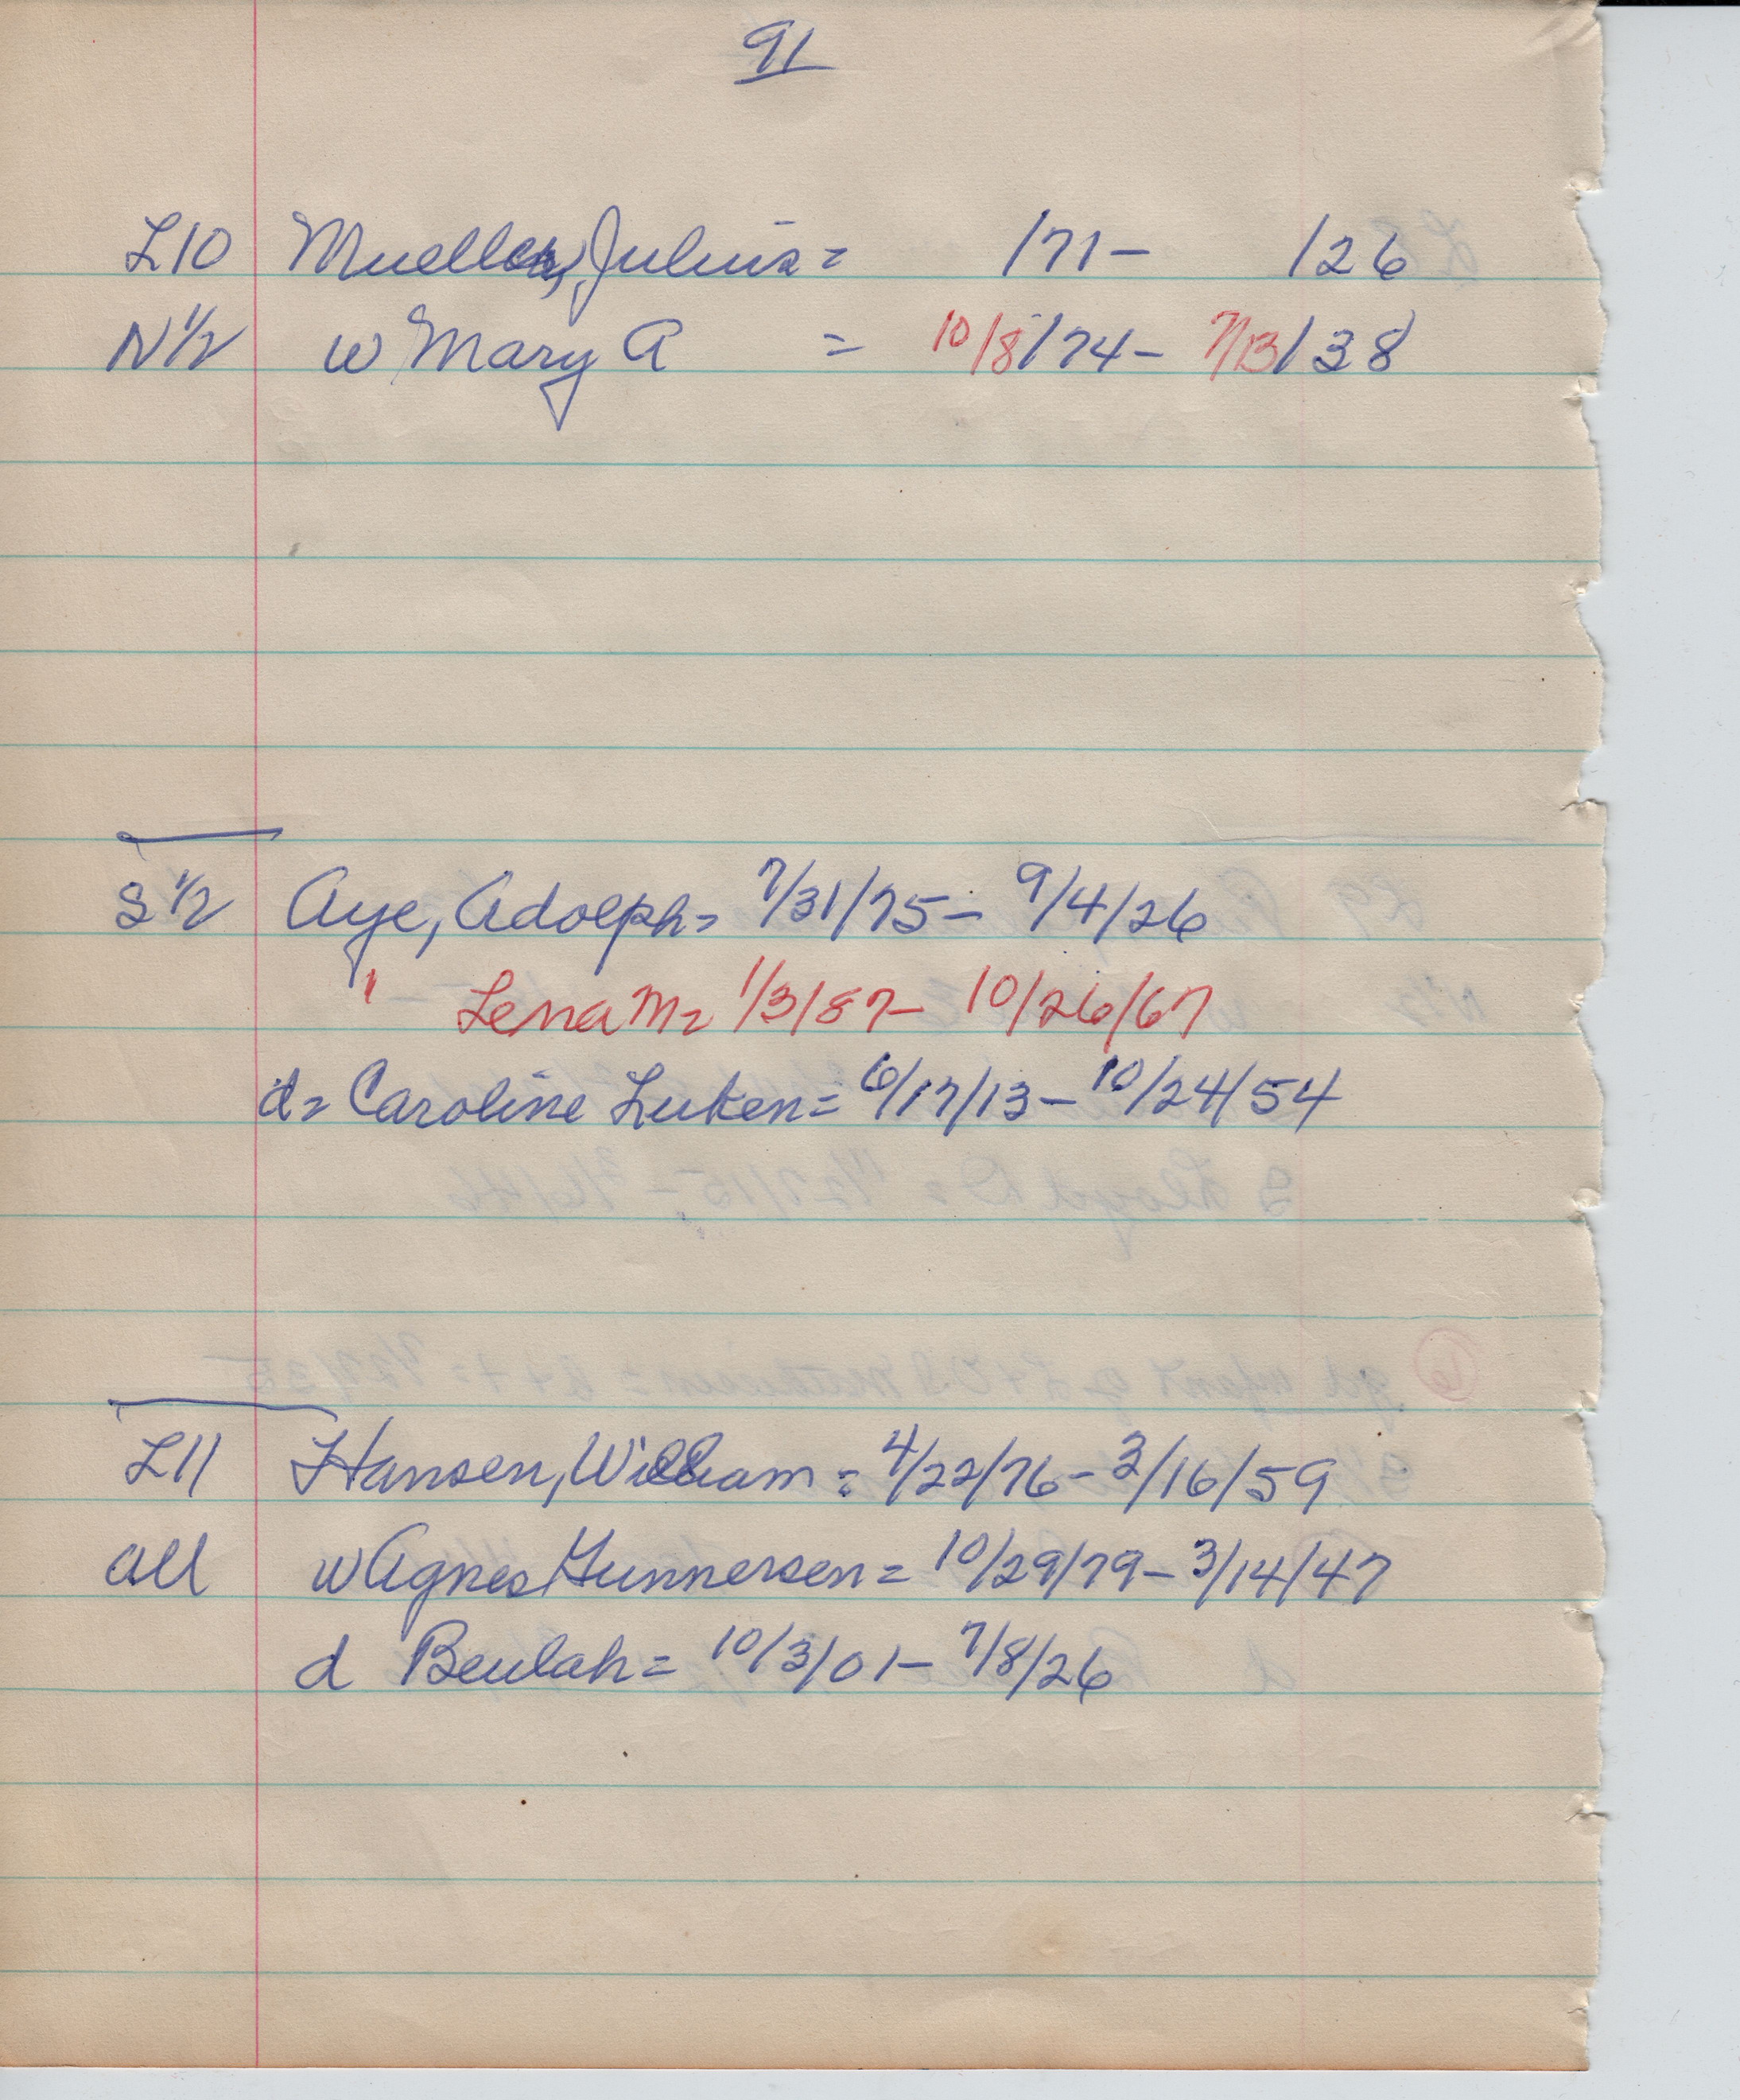 91
L10 Mueller, Julius = /71 - /26
N 1/2 w Mary A = 10/8/74 - 7/13/38
S 1/2 Aye, Adolph = 7/31/75 - 9/4/26
" Lena M = 1/3/87 - 10/26/67
d = Caroline Luken = 6/17/13 - 10/24/54
L11 Hansen, William = 4/22/76 - 3/16/59
all w Agnes Gunnersen = 10/29/79 - 3/14/47
d Beulah = 10/3/01 - 7/8/26